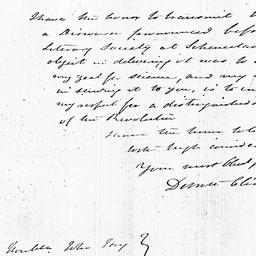 I have the honor to transmit
a Discourse pronounced before
Literary Society at Schenectad
object in delivering it was to
my zeal for science, and my
in sending it to you, is to
my respect for a distinguished
of the Revolution
I have the honor to be
with high consider
Your most Obed
Dewitt Cli
Honble John Jay }